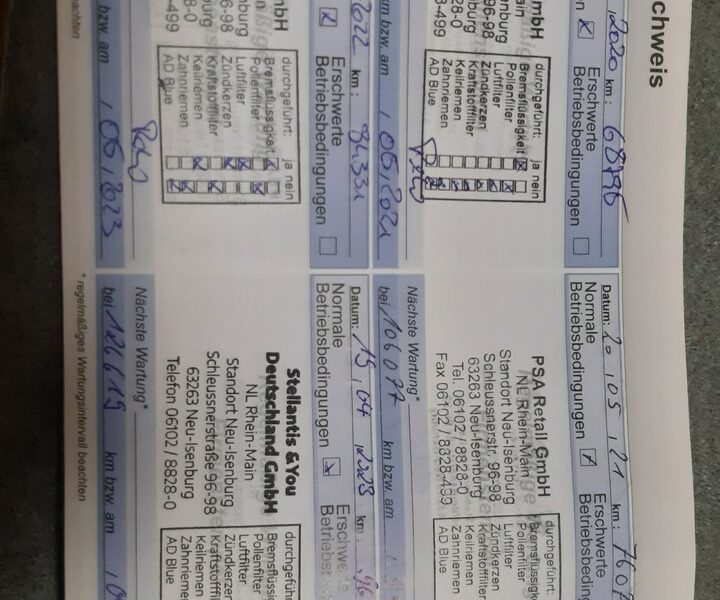 chweis
2020 km: 68796
n Erschwerte
Betriebsbedingungen
mbH
ain
enburg
96-98
nburg
28-0
8-499
durchgeführt: ja nein
Bremsflüssigkeit
Pollenfilter
Luftfilter
Zündkerzen
Kraftstofffilter
Keilriemen
Zahnriemen
AD Blue
km bzw. am 05, 2021
Datum: 20, 05, 21 km:
Normale
Betriebsbedingungen
Erschwerte
Betriebsbedingungen
PSA Retail GmbH
NL Rhein-Main
Standort Neu-Isenburg
Schleussnerstr. 96-98
63263 Neu-Isenburg
Tel. 06102 / 8828-0
Fax 06102 / 8328-499
durchgeführt:
Bremsflüssig
Pollenfilter
Luftfilter
Zündkerzen
Kraftstofffilter
Keilriemen
Zahnriemen
AD Blue
Nächste Wartung*
bei 106077 km bzw. am
2022 km: 84331
Erschwerte
Betriebsbedingungen
mbH
durchgeführt: ja nein
Bremsflüssigkeit
Pollenfilter
Luftfilter
Zündkerzen
Kraftstofffilter
Keilriemen
Zahnriemen
AD Blue
km bzw. am 05, 2023
beachten
Datum: 19, 04, 2023 km:
Normale
Betriebsbedingungen
Erschwerte
Betriebs
Stellantis & You
Deutschland GmbH
NL Rhein-Main
Standort Neu-Isenburg
Schleussnerstraße 96-98
63263 Neu-Isenburg
Telefon 06102 / 8828-0
durchgeführ
Bremsflüssi
Pollenfilter
Luftfilter
Zündkerzen
Kraftstofff
Keilriemen
Zahnriemen
AD Blue
Nächste Wartung*
bei 126619 km bzw. am
* regelmäßiges Wartungsintervall beachten